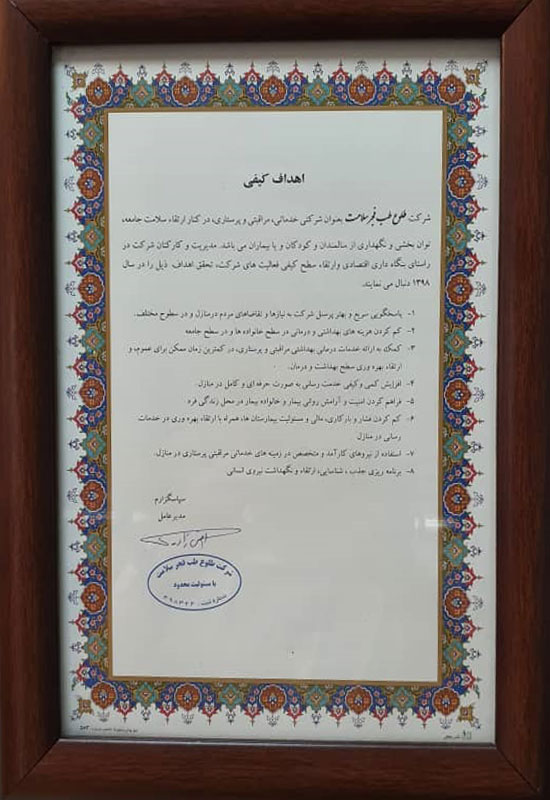 اهداف کیفی
شرکت طلوع طب فجر سلامت بعنوان شرکتی خدماتی، مراقبتی و پرستاری، در کنار ارتقاء سلامت جامعه،
توان بخشی و نگهداری از سالمندان و کودکان و یا بیماران می باشد. مدیریت و کارکنان شرکت در
راستای بنگاه داری اقتصادی وارتقاء سطح کیفی فعالیت های شرکت، تحقق اهداف ذیل را در سال
۱۳۹۸ دنبال می نمایند.
۱- پاسخگویی سریع و بهتر پرسنل شرکت به نیازها و تقاضاهای مردم درمنازل و در سطوح مختلف.
۲- کم کردن هزینه های بهداشتی و درمانی در سطح خانواده ها و در سطح جامعه
۳- کمک به ارائه خدمات درمانی بهداشتی مراقبتی و پرستاری، در کمترین زمان ممکن برای عموم، و
ارتقاء بهره وری سطح بهداشت و درمان.
۴- افزایش کمی وکیفی خدمت رسانی به صورت حرفه ای و کامل در منازل.
۵- فراهم کردن امنیت و آرامش روانی بیمار و خانواده بیمار در محل زندگی فرد
۶- کم کردن فشار و بارکاری، مالی و مسئولیت بیمارستان ها، همراه با ارتقاء بهره وری در خدمات
رسانی در منازل
۷- استفاده از نیروهای کارآمد و متخصص در زمینه های خدماتی مراقبتی پرستاری در منازل.
۸- برنامه ریزی جذب ، شناسایی، ارتقاء و نگهداشت نیروی انسانی.
سپاسگزارم
مدیرعامل
شرکت طلوع طب فجر سلامت
با مسئولیت محدود
شماره ثبت: